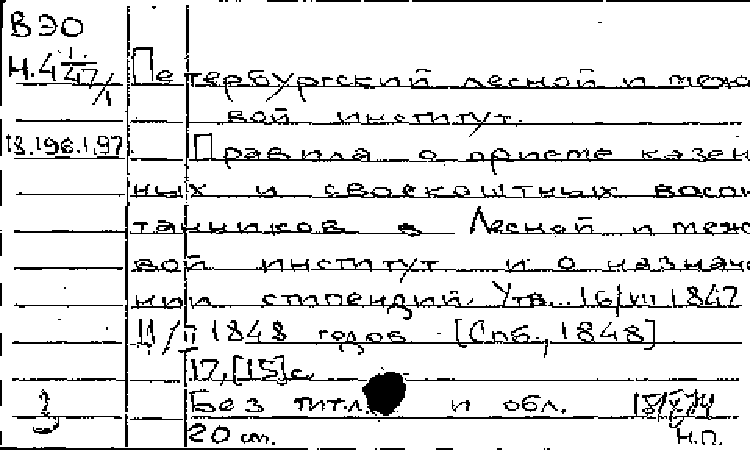 ВЭО
Н.4 1/47/1 Петербургский лесной и меже
вой институт.
18.196.1.97 Правила о приеме казен
ных и своекоштных воспи
танников в Лесной и меже
вой институт и о назначе
нии стипендий. Утв. 16/VII 1847
и /II 1848 годов [Спб., 1848]
17, [15] с.
3 Без титл и обл.
20 см. Н.П.